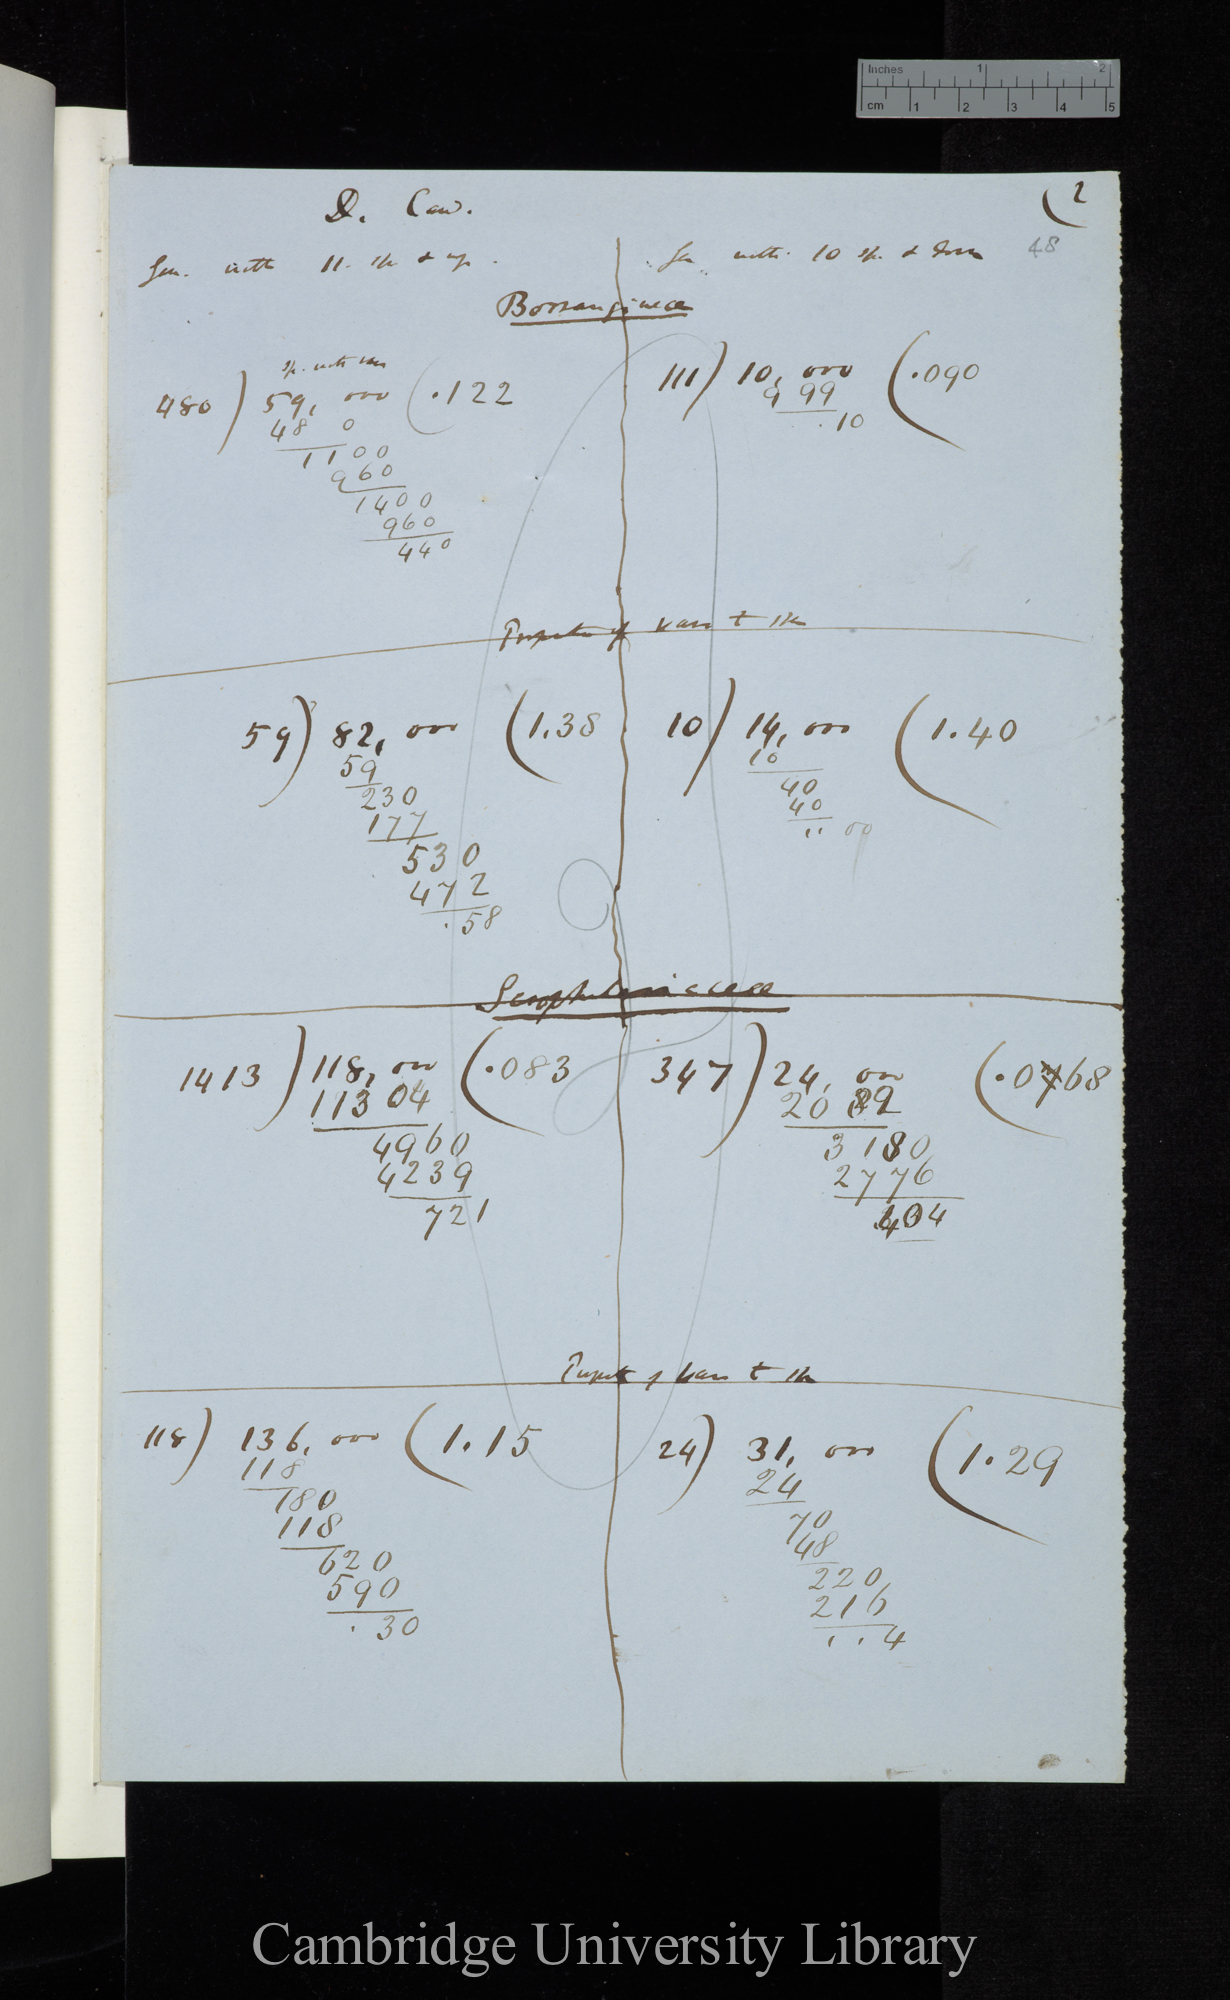 Inches 1 2
cm 1 2 3 4 5
D. Can.
(2
48
Gen. with 11. sp & up.
Gen. with. 10 sp. & down
Borragineæ
sp. with vars
480 ) 59, 000 ( .122
48 0
1100
960
1400
960
440
111 ) 10, 000 ( .090
9 99
.10
of vars to sp
59 ) 82, 000 ( 1.38
59
230
177
530
472
.58
10 ) 14, 000 ( 1.40
10
40
40
.. 00
Scrophulariaceæ
1413 ) 118, 000 ( .083
113 04
4960
4239
721
347 ) 24, 000 ( .0768
20 82
3180
2776
404
of vars to sp
118 ) 136, 000 ( 1.15
118
180
118
620
590
.30
24 ) 31, 000 ( 1.29
24
70
48
220
216
..4
Cambridge University Library